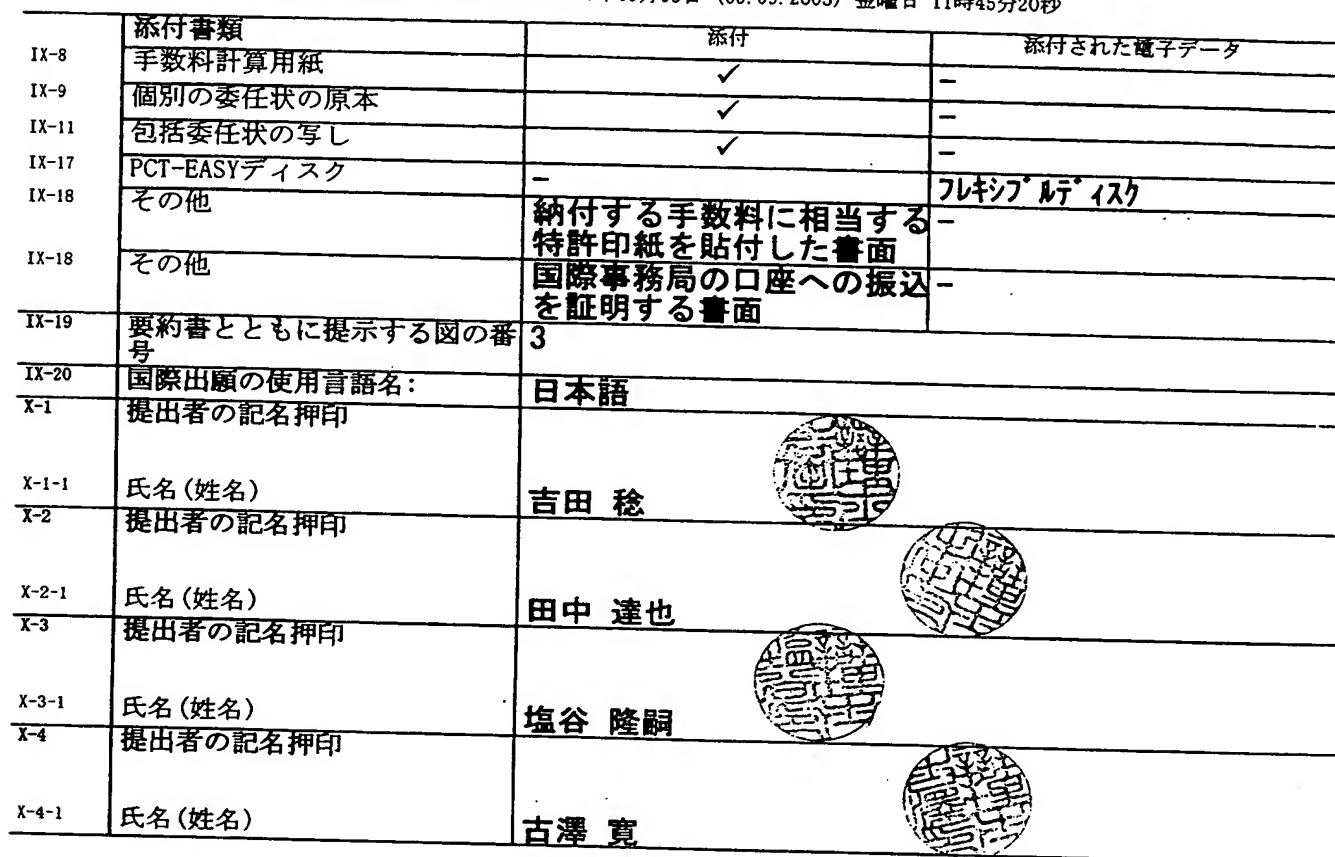 金曜日 11時45分20秒
添付書類 添付 添付された電子データ
IX-8 手数料計算用紙 ✓ -
IX-9 個別の委任状の原本 ✓ -
IX-11 包括委任状の写し ✓ -
IX-17 PCT-EASYディスク - フレキシブルディスク
IX-18 その他 納付する手数料に相当する -
特許印紙を貼付した書面
IX-18 その他 国際事務局の口座への振込 -
を証明する書面
IX-19 要約書とともに提示する図の番 3
号
IX-20 国際出願の使用言語名: 日本語
X-1 提出者の記名押印
X-1-1 氏名(姓名) 吉田 稔
X-2 提出者の記名押印
X-2-1 氏名(姓名) 田中 達也
X-3 提出者の記名押印
X-3-1 氏名(姓名) 塩谷 隆嗣
X-4 提出者の記名押印
X-4-1 氏名(姓名) 古澤 寛